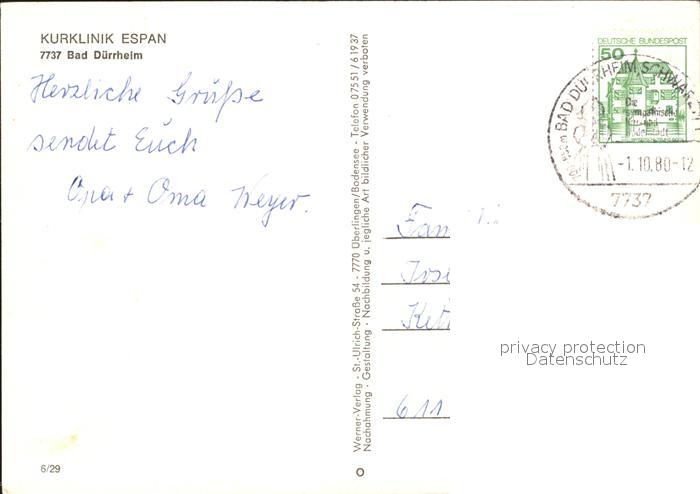 KURKLINIK ESPAN
7737 Bad Dürrheim
Herzliche Grüße
sendet Euch
Opa + Oma Weyer.
6/29
Werner-Verlag - St.-Ulrich-Straße 54 - 7770 Überlingen/Bodensee - Telefon 07551/61937
Nachahmung · Gestaltung · Nachbildung u. jegliche Art bildlicher Verwendung verboten
DEUTSCHE BUNDESPOST
50
BAD DÜRRHEIM, SCHWARZW
Die
sympathische
Kur- und
-1.10.80-12
7737
Fam
611
privacy protection
Datenschutz